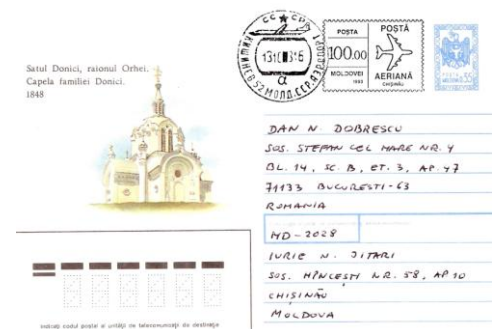 Satul Donici, raionul Orhei.
Capela familiei Donici.
1848
CC CP
КИШИНЕВ 52 МОЛД.ССР.АЭРОПОРТ
α
POSTA
100.00
MOLDOVEI
1993
POȘTĂ
AERIANĂ
CHIȘINĂU
POSTA
MOLDOVA
35
DAN N. DOBRESCU
SOS. STEFAN CEL MARE NR. 4
BL. 14, SC. B, ET. 3, AP. 47
71133 BUCURESTI-63
ROMANIA
MD-2028
IURIE N. JITARI
SOS. HÎNCEȘTI NR. 58, AP 10
CHIȘINĂU
MOLDOVA
Indicați codul poștal al unității de telecomunicații de destinație